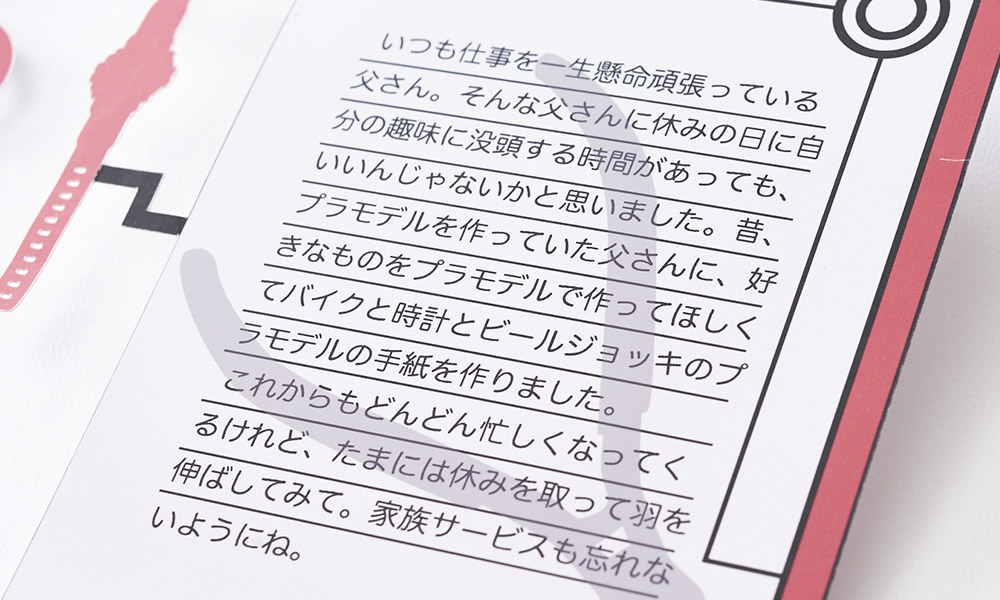 いつも仕事を一生懸命頑張っている
父さん。そんな父さんに休みの日に自
分の趣味に没頭する時間があっても、
いいんじゃないかと思いました。昔、
プラモデルを作っていた父さんに、好
きなものをプラモデルで作ってほしく
てバイクと時計とビールジョッキのプ
ラモデルの手紙を作りました。
これからもどんどん忙しくなってく
るけれど、たまには休みを取って羽を
伸ばしてみて。家族サービスも忘れな
いようにね。